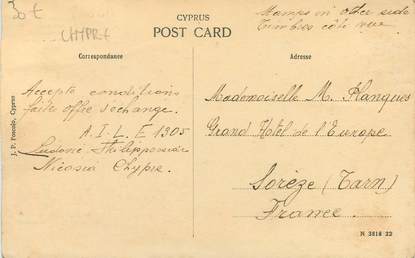 30 €
CHYPRE
CYPRUS
POST CARD
Stamps on other side
Timbres côté vue
Correspondance
Adresse
Accepte conditions
faite offre échange.
A.I.L.E 1305
Ludovic
Nicosia Chypre.
J. P. Foscolo, Cyprus
Mademoiselle M. Planques
Grand Hotel de l'Europe
Sorèze (Tarn)
France.
N 3818 22